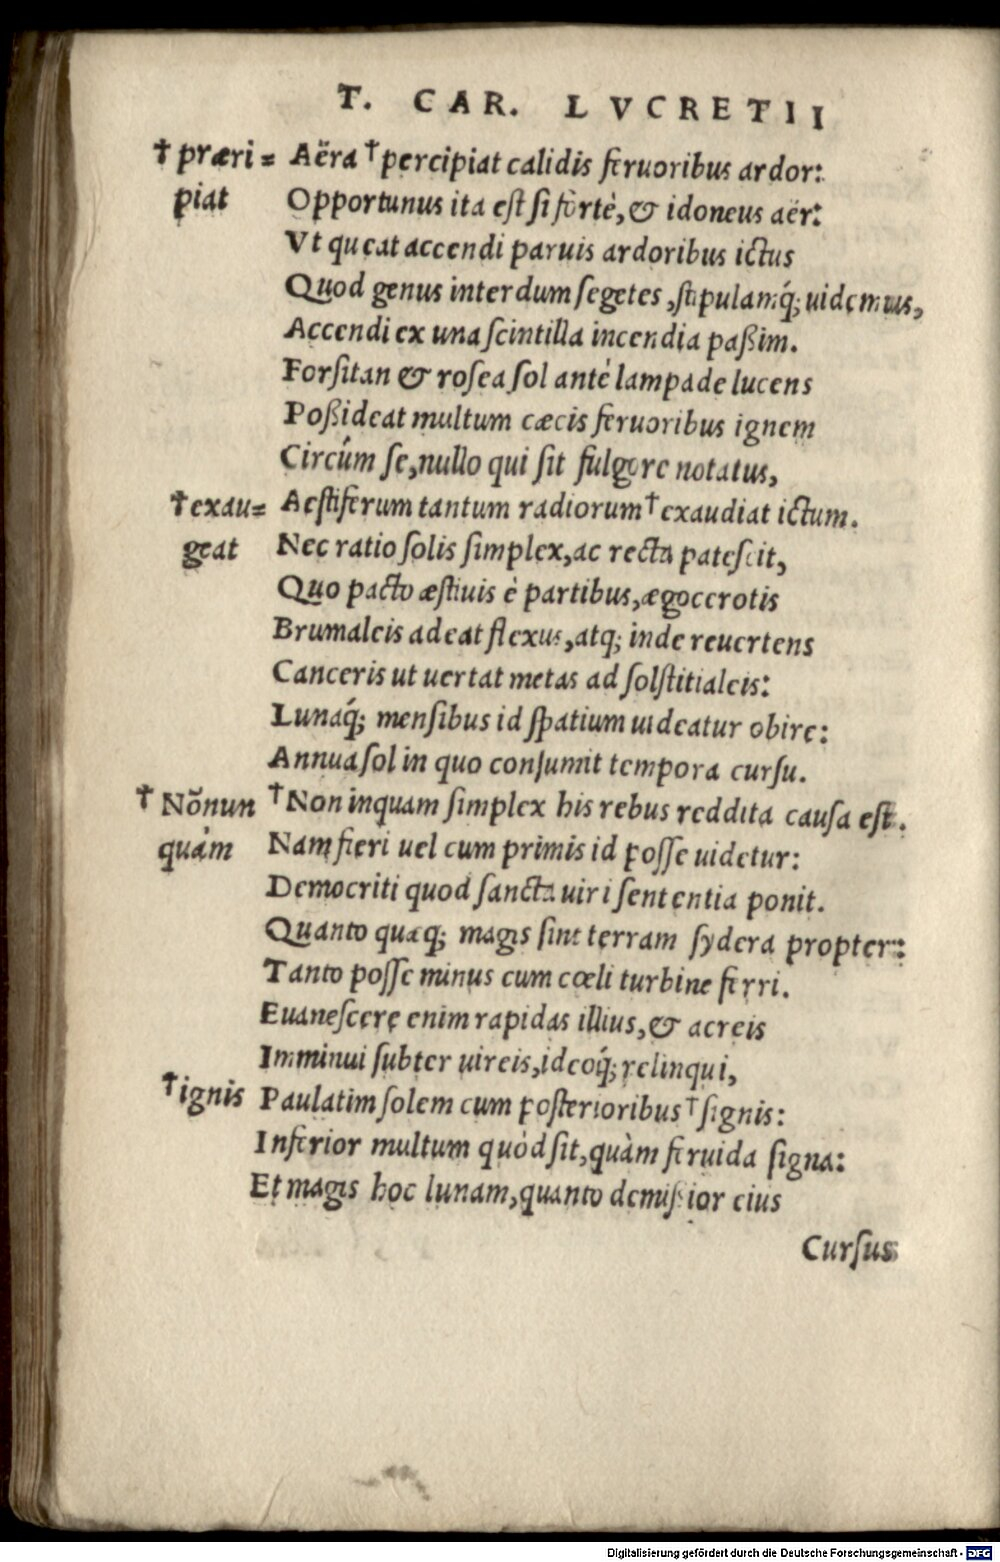 T. CAR. LVCRETII
† præri= Aëra † percipiat calidis feruoribus ardor:
piat Opportunus ita est si fortè, & idoneus aër:
Vt queat accendi paruis ardoribus ictus
Quod genus interdum segetes, stipulamq́; uidemus,
Accendi ex una scintilla incendia paßim.
Forsitan & rosea sol antè lampade lucens
Poßideat multum cæcis feruoribus ignem
Circúm se, nullo qui sit fulgore notatus,
† exau= Aestiferum tantum radiorum † exaudiat ictum.
geat Nec ratio solis simplex, ac recta patescit,
Quo pacto æstiuis è partibus, ægocerotis
Brumaleis adeat flexus, atq; inde reuertens
Canceris ut uertat metas ad solstitialeis:
Lunaq́; mensibus id spatium uideatur obire:
Annua sol in quo consumit tempora cursu.
† Nōnun † Non inquam simplex his rebus reddita causa est.
quàm Nam fieri uel cum primis id posse uidetur:
Democriti quod sancta uiri sententia ponit.
Quanto quæq; magis sint terram sydera propter:
Tanto posse minus cum cœli turbine ferri.
Euanescere enim rapidas illius, & acreis
Imminui subter uireis, ideoq́; relinqui,
† ignis Paulatim solem cum posterioribus † signis:
Inferior multum quòd sit, quàm feruida signa:
Et magis hoc lunam, quanto demißior eius
Cursus
Digitalisierung gefördert durch die Deutsche Forschungsgemeinschaft - DFG